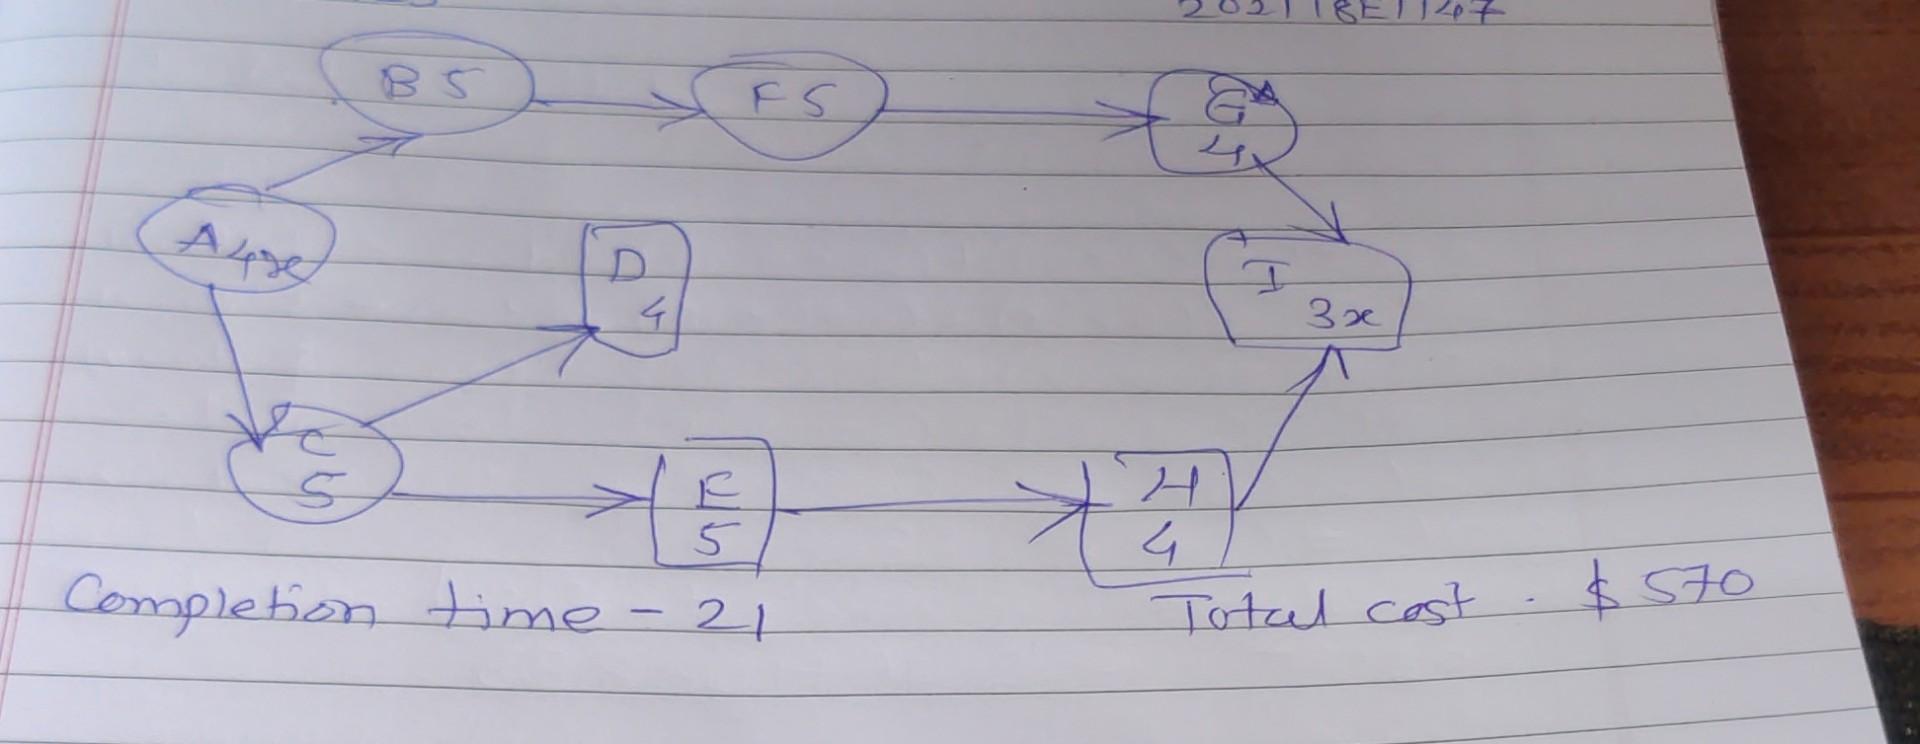 B 5
F 5
G
4
A 4x
D
4
I
3x
C
5
E
5
H
4
Completion time - 21
Total cost . $ 570